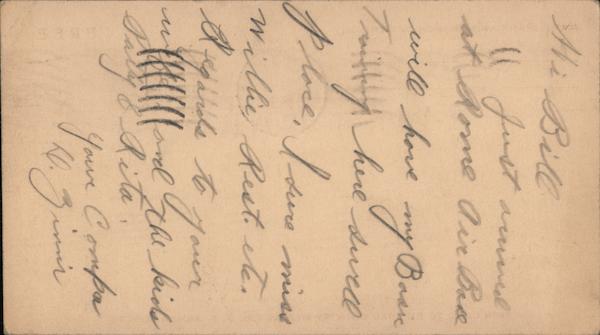 Hi Bill
Just arrived
at Rome Air Base
will have my Basic
Training here swell
Place. I sure miss
Willie, Rest. etc.
Regards to your
wife and the kids
Sally & Rita.
Your Compa